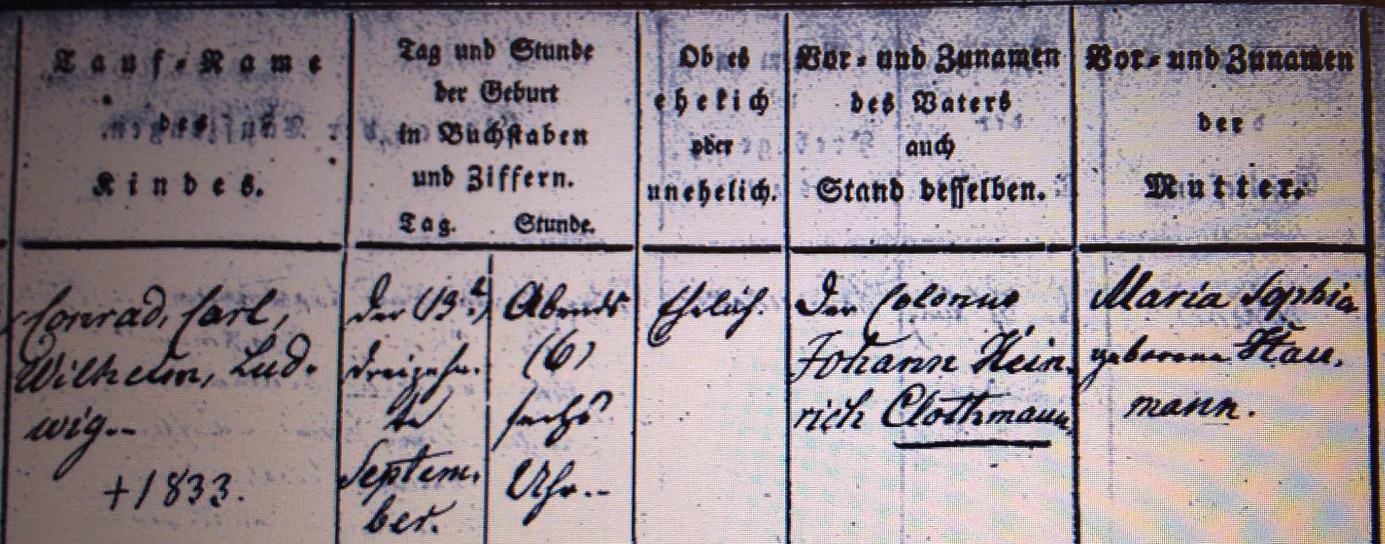 Tauf-Name
des
Kindes.
Tag und Stunde
der Geburt
in Buchstaben
und Ziffern.
Tag. Stunde.
Ob es
ehelich
oder
unehelich.
Vor- und Zunamen
des Vaters
auch
Stand desselben.
Vor- und Zunamen
der
Mutter.
Conrad, Carl,
Wilhelm, Lud-
wig.
+1833.
der (13t)
dreizehn-
te
Septem-
ber.
Abends
(6)
sechs
Uhr.
Ehelich.
Der Colonus
Johann Hein-
rich Clothmann
Maria Sophia
geborene
mann.